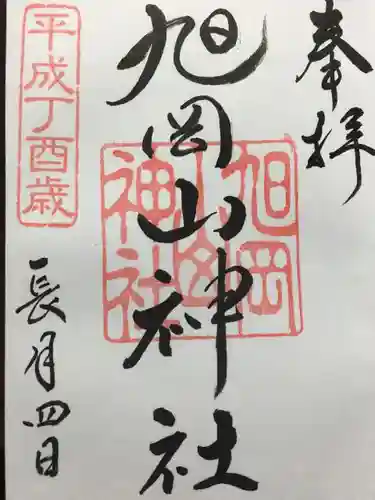 奉拝
旭岡山神社
旭岡
山
神社
平成丁酉歳
長月四日